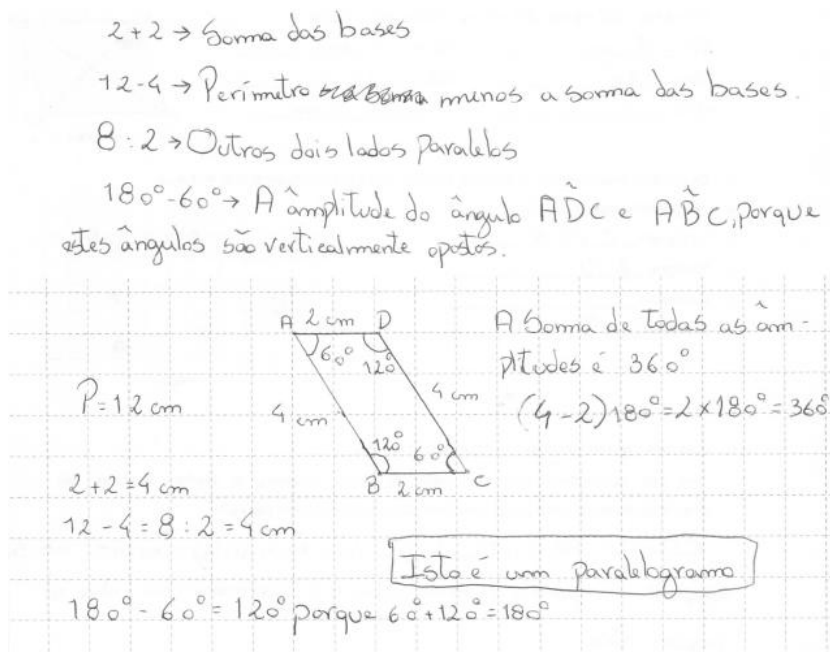 2+2 → Soma das bases
12-4 → Perímetro menos a soma das bases.
8:2 → Outros dois lados Paralelos
180°-60° → A âmplitude do ângulo AD̂C e AB̂C, porque
estes ângulos são verticalmente opostos.
A 2 cm D
60° 120°
4 cm
4 cm
120° 60°
B 2 cm C
A Soma de todas as âm-
plitudes é 360°
(4-2)180°=2×180°=360°
P=12 cm
2+2=4 cm
12-4=8:2=4 cm
Isto é um paralelogramo
180°-60°=120° porque 60°+120°=180°